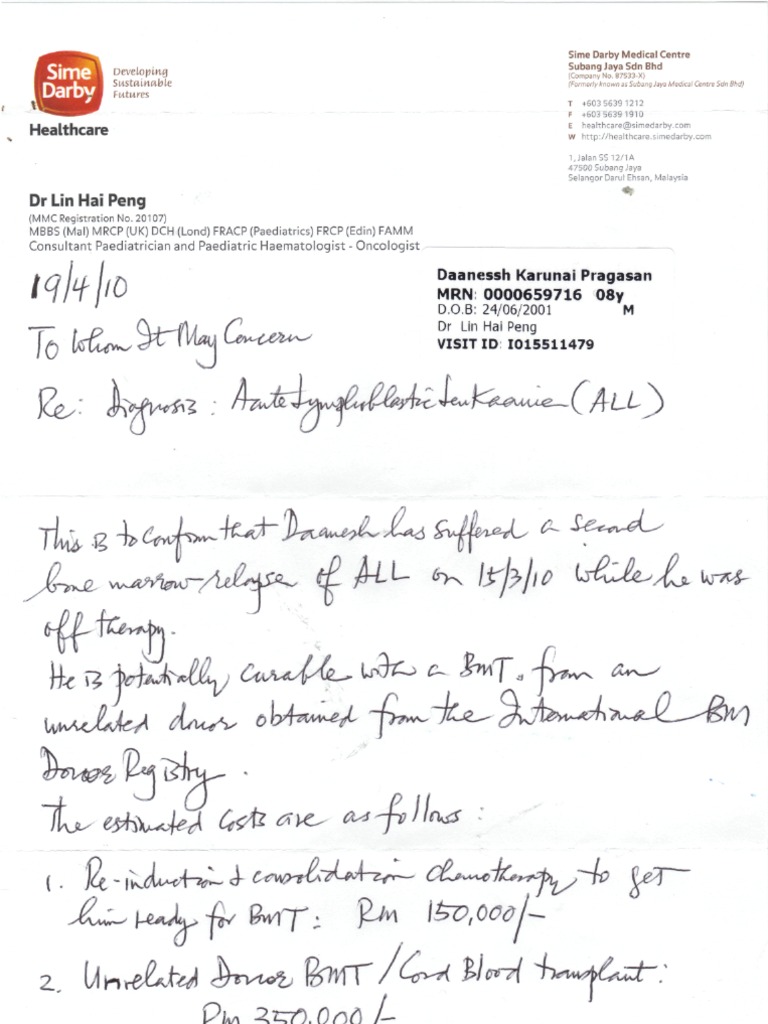 Sime
Darby
Developing
Sustainable
Futures
Healthcare
Sime Darby Medical Centre
Subang Jaya Sdn Bhd
(Company No. 87533-X)
(Formerly known as Subang Jaya Medical Centre Sdn Bhd)
T +603 5639 1212
F +603 5639 1910
E healthcare@simedarby.com
W http://healthcare.simedarby.com
1, Jalan SS 12/1A
47500 Subang Jaya
Selangor Darul Ehsan, Malaysia
Dr Lin Hai Peng
(MMC Registration No. 20107)
MBBS (Mal) MRCP (UK) DCH (Lond) FRACP (Paediatrics) FRCP (Edin) FAMM
Consultant Paediatrician and Paediatric Haematologist - Oncologist
Daanessh Karunai Pragasan
MRN: 0000659716 08y
D.O.B: 24/06/2001 M
Dr Lin Hai Peng
VISIT ID: I015511479
19/4/10
To Whom It May Concern
Re: Diagnosis: Acute Lymphoblastic Leukaemia (ALL)
This is to confirm that Daanesh has suffered a second
bone marrow relapse of ALL on 15/3/10 while he was
off therapy.
He is potentially curable with a BMT. from an
unrelated donor obtained from the International BM
Donor Registry.
The estimated costs are as follows:
1. Re-induction & consolidation chemotherapy to get
him ready for BMT: RM 150,000/-
2. Unrelated Donor BMT/Cord Blood transplant:
RM 350,000/-